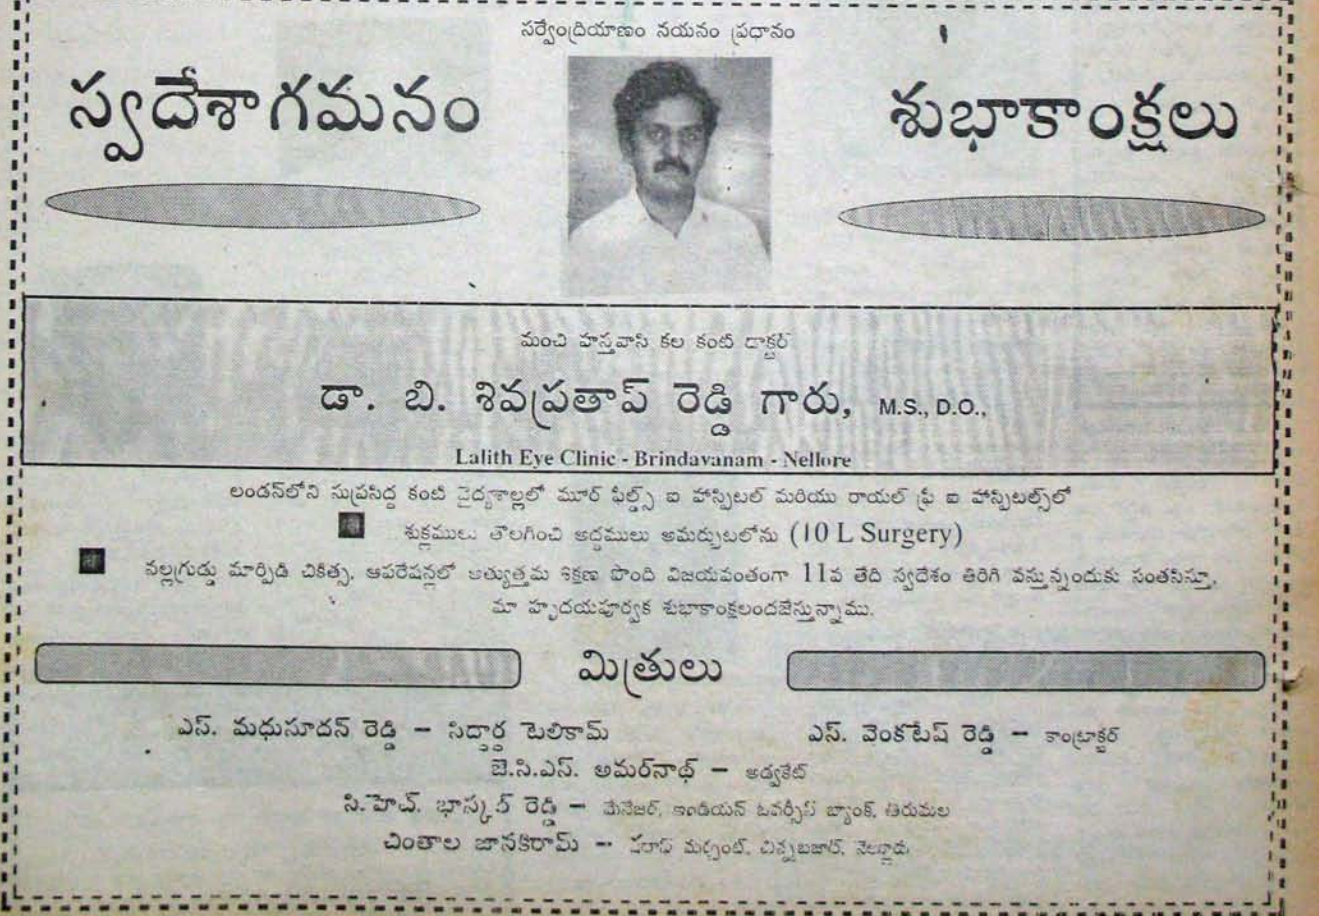 సర్వేంద్రియాణం నయనం ప్రధానం
స్వదేశాగమనం శుభాకాంక్షలు
మంచి హస్తవాసి కల కంటి డాక్టర్
డా. బి. శివప్రతాప్ రెడ్డి గారు, M.S., D.O.,
Lalith Eye Clinic - Brindavanam - Nellore
లండన్‌లోని సుప్రసిద్ధ కంటి వైద్యశాలల్లో మూర్ ఫీల్డ్స్ ఐ హాస్పిటల్ మరియు రాయల్ ఫ్రీ ఐ హాస్పిటల్స్‌లో
శుక్లములు తొలగించి అద్దములు అమర్చుటలోను (10 L Surgery)
నల్లగ్రుడ్డు మార్పిడి చికిత్స, ఆపరేషన్లలో అత్యుత్తమ శిక్షణ పొంది విజయవంతంగా 11వ తేది స్వదేశం తిరిగి వస్తున్నందుకు సంతసిస్తూ,
మా హృదయపూర్వక శుభాకాంక్షలందజేస్తున్నాము.
మిత్రులు
ఎస్. మధుసూదన్ రెడ్డి – సిద్దార్థ టెలికామ్ ఎస్. వెంకటేష్ రెడ్డి – కాంట్రాక్టర్
జె.సి.ఎస్. అమర్‌నాథ్ – అడ్వకేట్
సి.హెచ్. భాస్కర్ రెడ్డి – మేనేజర్, ఇండియన్ ఓవర్సీస్ బ్యాంక్, తిరుమల
చింతాల జానకిరామ్ – షరాఫ్ మర్చంట్, చిన్నబజార్, నెల్లూరు